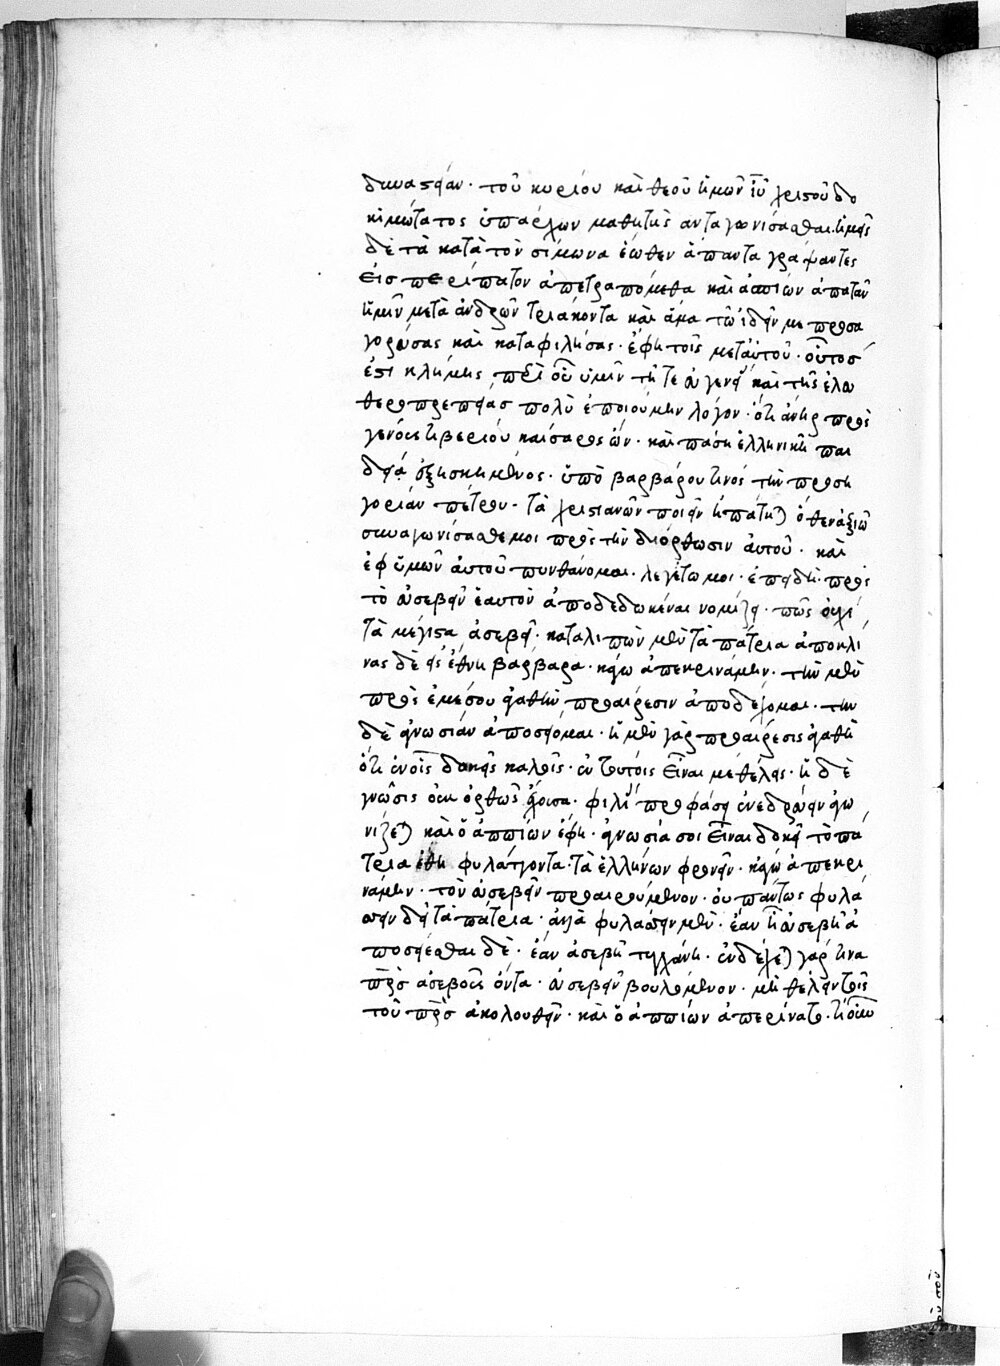 δυναστείαν· τοῦ κυρίου καὶ θεοῦ ἡμῶν ἰῦ χριστοῦ δο
κιμώτατος ὑπάρχων μαθητὴς ἀνταγωνίσασθαι. ἡμεῖς
δὲ τὰ κατὰ τὸν σίμωνα ἕωθεν ἅπαντα γράψαντες
εἰς περίπατον ἀπετραπόμεθα καὶ ἀππίων ἀπαντᾶ
ἡμῖν μετὰ ἀνδρῶν τριάκοντα καὶ ἅμα τῶ ἰδεῖν με προσα
γορεύσας καὶ καταφιλήσας· ἔφη τοῖς μετ αὐτοῦ· οὗτοσ
ἐστι κλήμης, περὶ οὗ ὑμῖν τῆς τε εὐγενείας καὶ τῆς ἐλευ
θεροπρεπείας πολὺν ἐποιούμην λόγον· ὅτι ἀνὴρ πρὸς
γένους τιβερίου καίσαρος ὢν· καὶ πάση ἑλληνικῆ παι
δεία ἐξησκημένος· ὑπὸ βαρβάρου τινός τὴν προση
γορίαν πέτρου· τὰ χριστιανῶν ποιεῖν ἠπάτηται ὅθεν ἀξιῶ
συναγωνίσασθέ μοι πρὸς τὴν διόρθωσιν αὐτοῦ· καὶ
ἐφ ὑμῶν αὐτοῦ πυνθάνομαι. λεγέτω μοι· ἐπειδὴ πρὸς
τὸ εὐσεβεῖν ἑαυτὸν ἀποδεδωκέναι νομίζει· πῶς οὐχὶ
τὰ μέγιστα ἀσεβεῖ· καταλιπὼν μὲν τὰ πάτρια ἀποκλί
νας δὲ εἰς ἔθνη βάρβαρα· κἀγὼ ἀπεκρινάμην· τὴν μὲν
πρὸς ἐμέ σου ἀγαθὴν προαίρεσιν ἀποδέχομαι· τὴν
δὲ ἀγνωσίαν ἀποσείομαι· ἡ μὲν γὰρ προαίρεσις ἀγαθὴ
ὅτι ἐν οἷς δοκεῖς καλοῖς· ἐν τούτοις εἶναί με θέλεις· ἡ δὲ
γνῶσις οὐκ ὀρθῶς ἔχουσα· φιλίας προφάσει ἐνεδρεύειν ἀγω
νίζεται καὶ ὁ ἀππίων ἔφη· ἀγνωσία σοι εἶναι δοκεῖ τὸ πά
τρια ἔθη φυλάττοντα· τὰ ἑλλήνων φρονεῖν· κἀγὼ ἀπεκρι
νάμην· τὸν εὐσεβεῖν προαιρούμενον· οὐ πάντως φυλάσ
σειν δεῖ τὰ πάτρια· ἀλλὰ φυλάσσειν μὲν· ἐὰν ἦ εὐσεβῆ ἀ
ποσείεσθαι δὲ· ἐὰν ἀσεβῆ τυγχάνη· ἐνδέχεται γάρ τινα
πρς ἀσεβοῦς ὄντα· εὐσεβεῖν βουλόμενον· μὴ θέλειν τοῖς
τοῦ πρς ἀκολουθεῖν· καὶ ὁ ἀππίων ἀπεκρίνατο· τί οὖν